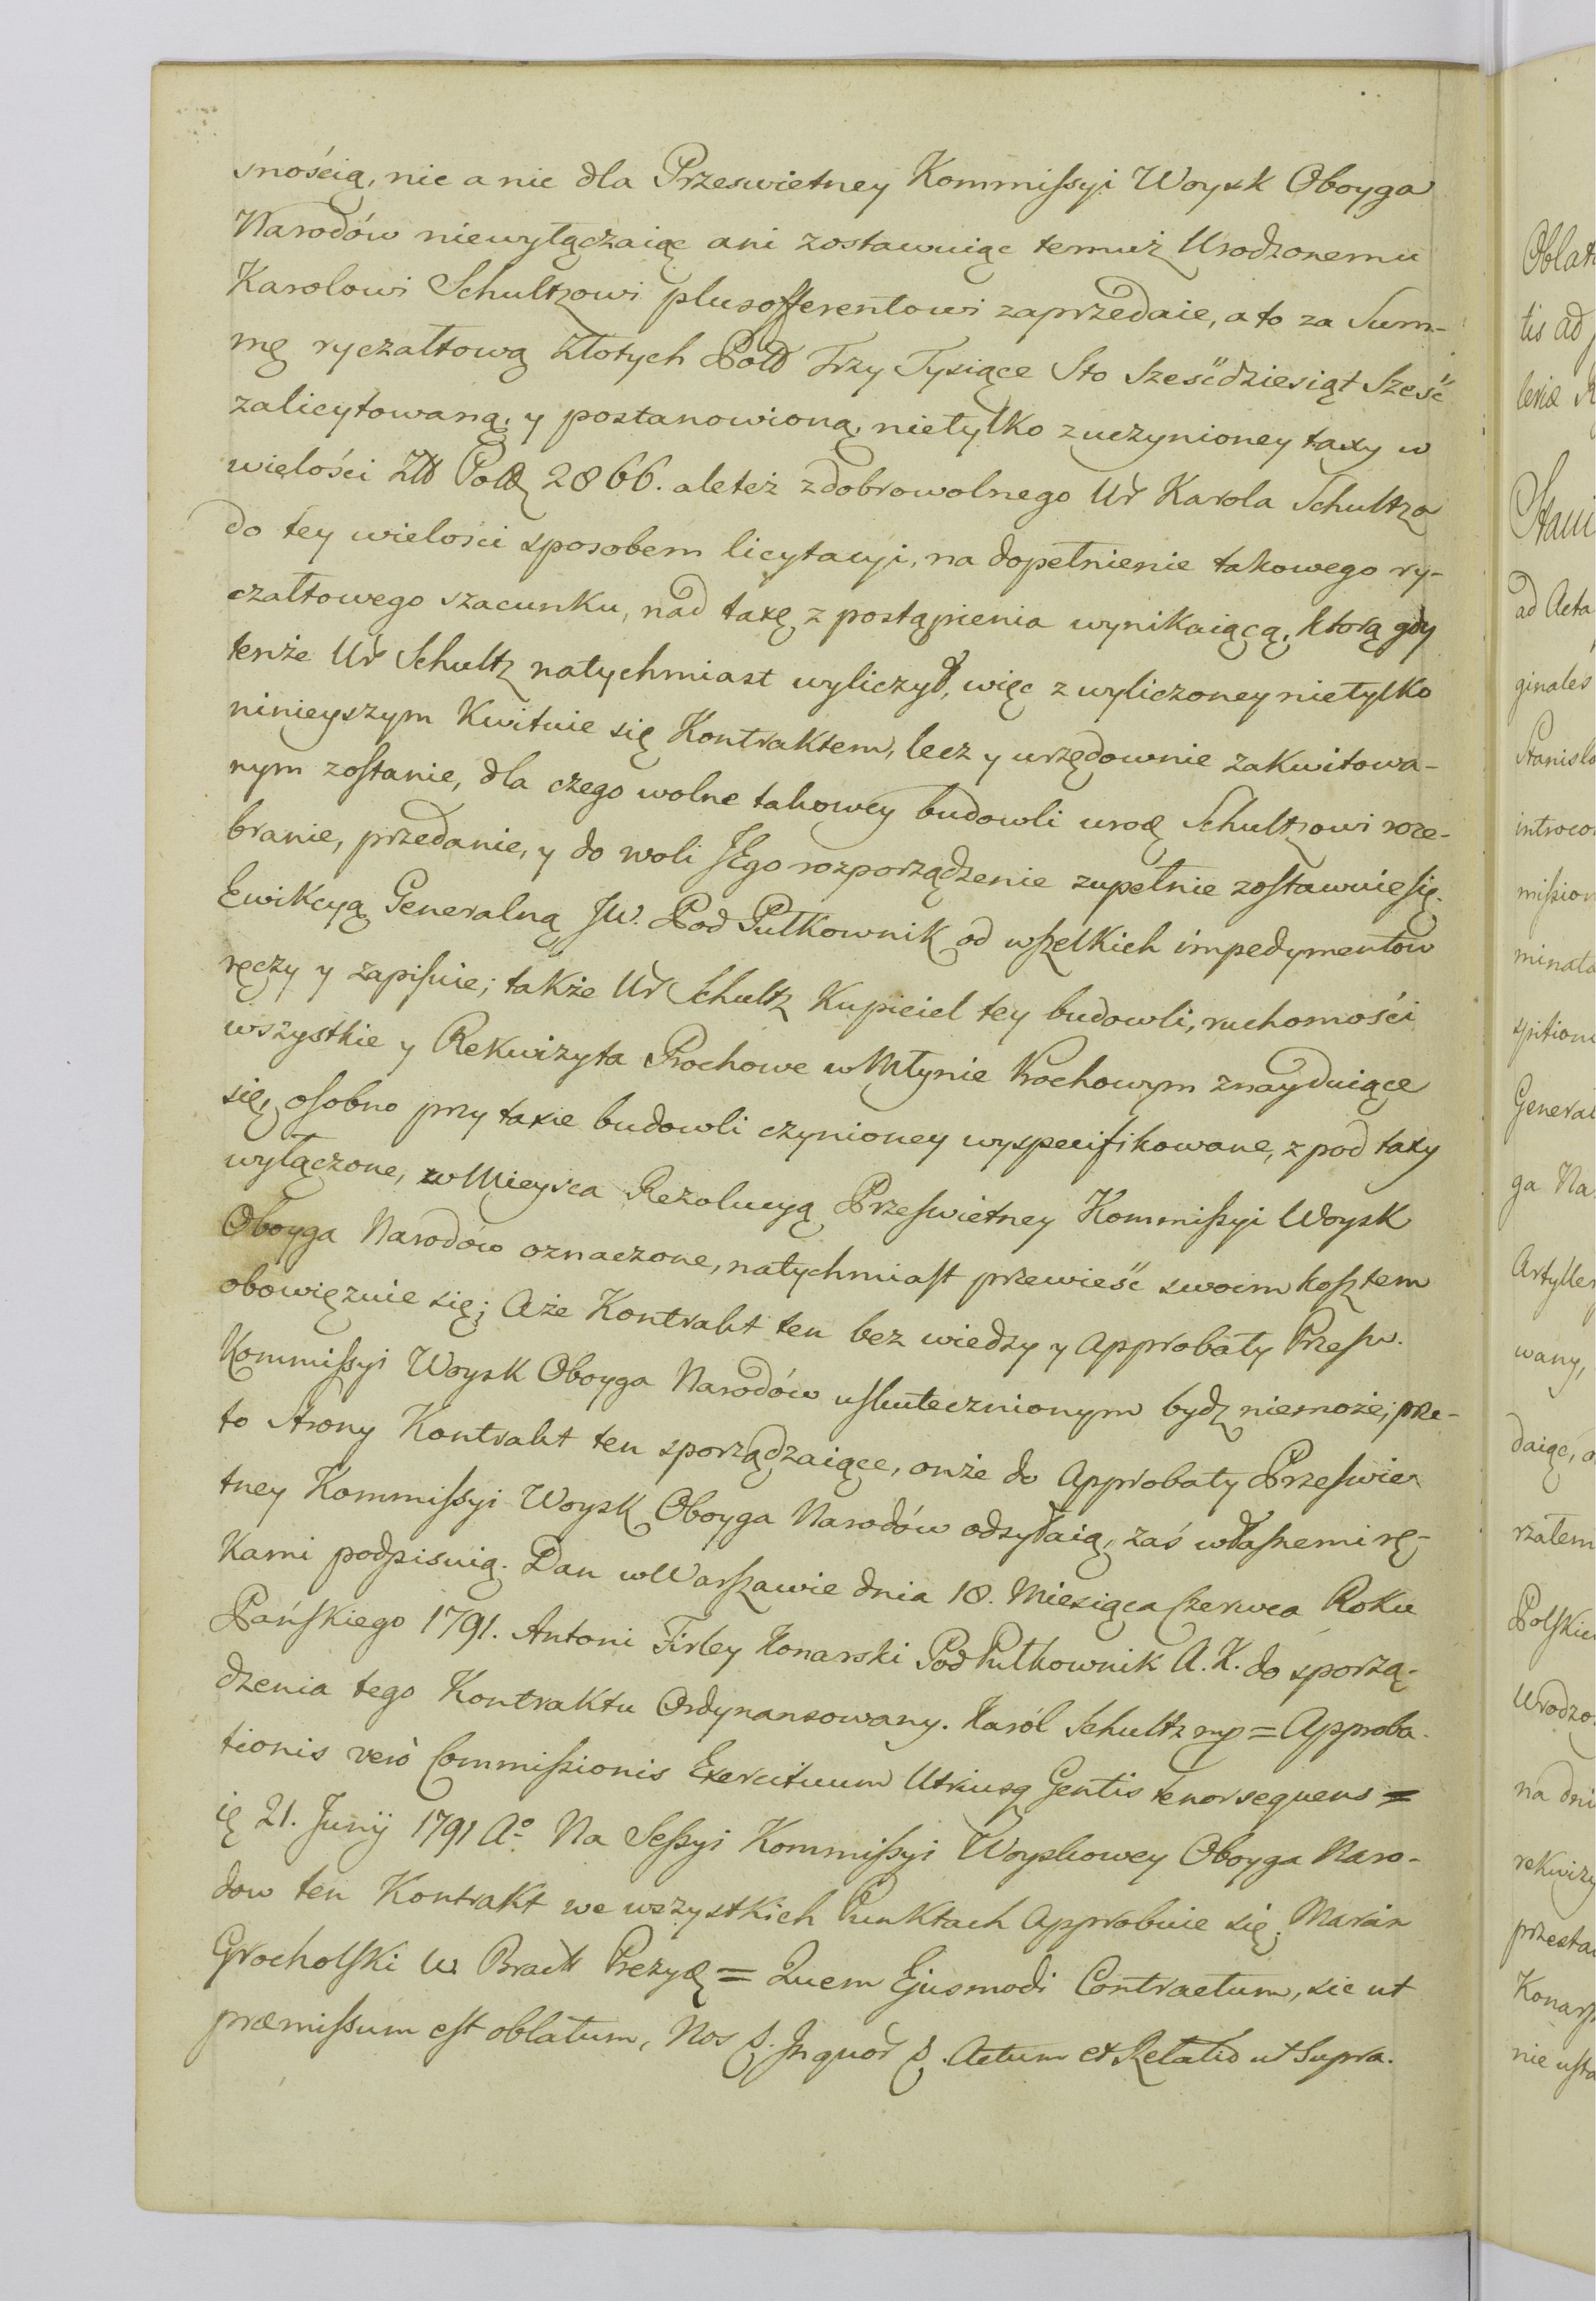 snością, nic a nic dla Przeswietney Kommissyi Woysk Oboyga
Narodów niewyłączaiąc ani zostawuiąc temuż Urodzonemu
Karolowi Schultzowi plusofferentowi zaprzedaie, a to za Sum-
mę ryczałtową Złotych Pold Trzy Tysiące Sto Sześćdziesiąt Sześć
zalicytowaną, y postanowioną, nietylko z uczynioney taxy w
wielości Złł Pold 2866. ale też z dobrowolnego Ur Karola Schultza
do tey wielości sposobem licytacyi, na dopełnienie takowego ry-
czałtowego szacunku, nad taxę z postąpienia wynikaiącą, ktorą gdy
tenże Ur Schultz natychmiast wyliczył, więc z wyliczoney nietylko
ninieyszym Kwituie się Kontraktem, lecz y urzędownie zakwitowa-
nym zostanie, dla czego wolne takowey budowli urod Schultzowi roze-
branie, przedanie, y do woli JEgo rozporządzenie zupełnie zostawuie się.
Ewikcyą Generalną JW. Pod Pułkownik od wszelkich impedymentow
ręczy y zapisuie; także Ur Schultz Kupiciel tey budowli, ruchomości
wszystkie y Rekwizyta Prochowe w Młynie Prochowym znayduiące
się, osobno przy taxie budowli czynioney wyspecifikowane, z pod taxy
wyłączone, w Mieysca Rezolucyą Przeswietney Kommissyi Woysk
Oboyga Narodów oznaczone, natychmiast przewieść swoim kosztem
obowięzuie się; A że Kontrakt ten bez wiedzy y Approbaty Przesw.
Kommissyi Woysk Oboyga Narodów uskutecznionym bydz niemoże; prze-
to Strony Kontrakt ten sporządzaiące, onże do Approbaty Przeswie-
tney Kommissyi Woysk Oboyga Narodów odsyłaią, zaś własnemi rę-
kami podpisuią. Dan w Warszawie dnia 18. Miesiąca Czerwca Roku
Pańskiego 1791. Antoni Firley Konarski Pod Pułkownik A. K. do sporzą-
dzenia tego Kontraktu Ordynansowany. Karól Schultz mp = Approba-
tionis verò Commissionis Exercituum Utriusq Gentis tenor sequens =
ię 21. Junij 1791 Aº Na Sessyi Kommissyi Woyskowey Oboyga Naro-
dow ten Kontrakt we wszystkich Punktach Approbuie się. Marcin
Grocholski W. Pracł Prezyd = Quem Ejusmodi Contractum, sic ut
præmissum est oblatum, Nos S. Inquor S. Actum et Relatio ut Supra.
Oblat
tis ad
ad Acta
ginales
Stanisla
introco
mission
minata
General
ga Na
Artyller
wany,
daiąc,
rzałem
Polskie
Urodzo
na dni
rekwizy
przesta
Konars
nie usta